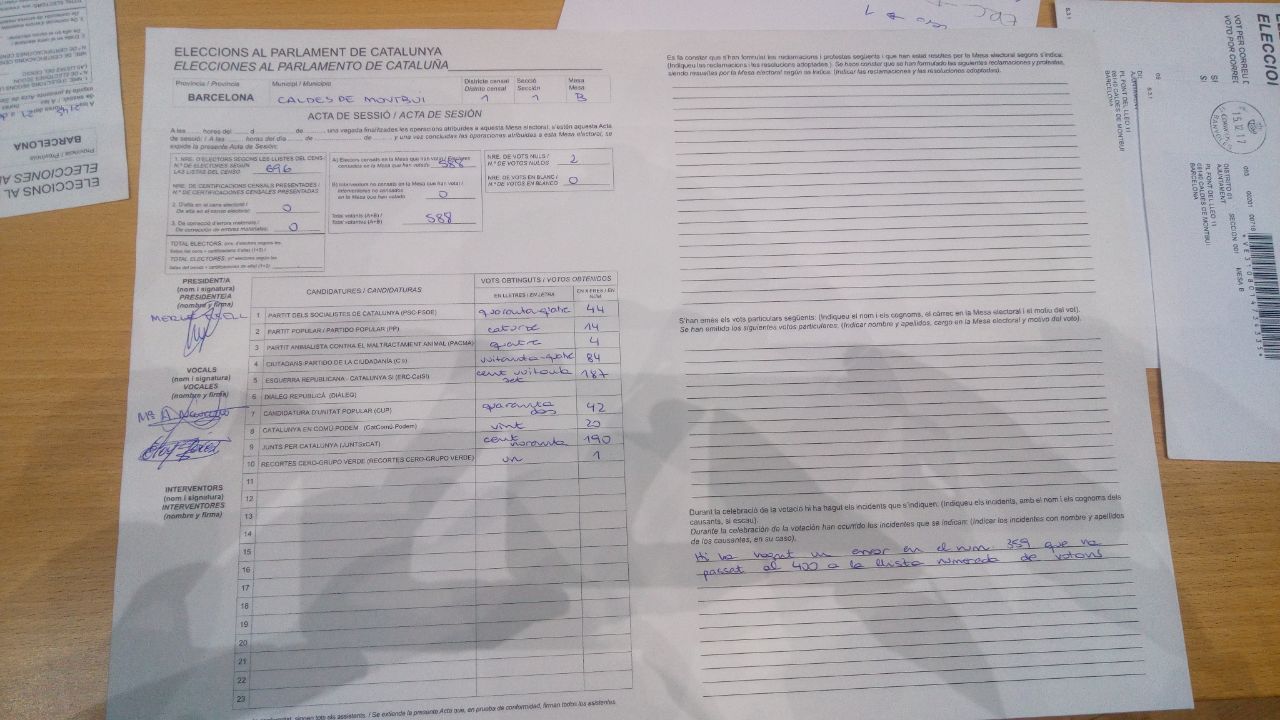 ELECCIONS AL PARLAMENT DE CATALUNYA
ELECCIONES AL PARLAMENTO DE CATALUÑA
Província / Provincia
BARCELONA
Municipi / Municipio
CALDES DE MONTBUI
Districte censal
Distrito censal
1
Secció
Sección
1
Mesa
Mesa
B
ACTA DE SESSIÓ / ACTA DE SESIÓN
A les ...... hores del ...... d ............ de ......, una vegada finalitzades les operacions atribuïdes a aquesta Mesa electoral, s'estén aquesta Acta
de sessió. / A las ...... horas del día ...... de ............ de ...... y una vez concluidas las operaciones atribuidas a esta Mesa electoral, se
expide la presente Acta de Sesión.
1. NRE. D'ELECTORS SEGONS LES LLISTES DEL CENS
N.º DE ELECTORES SEGÚN
LAS LISTAS DEL CENSO
696
NRE. DE CERTIFICACIONS CENSALS PRESENTADES /
N.º DE CERTIFICACIONES CENSALES PRESENTADAS
2. D'alta en el cens electoral /
De alta en el censo electoral:
0
3. De correcció d'errors materials /
De corrección de errores materiales:
0
TOTAL ELECTORS
TOTAL ELECTORES
A) Electors censats en la Mesa que han votat / Electores
censados en la Mesa que han votado
588
B) Interventors no censats en la Mesa que han votat /
Interventores no censados
en la Mesa que han votado
0
Total votants (A+B) /
Total votantes (A+B)
588
NRE. DE VOTS NULS /
N.º DE VOTOS NULOS
2
NRE. DE VOTS EN BLANC /
N.º DE VOTOS EN BLANCO
0
PRESIDENT/A
(nom i signatura)
PRESIDENTE/A
(nombre y firma)
VOCALS
(nom i signatura)
VOCALES
(nombre y firma)
INTERVENTORS
(nom i signatura)
INTERVENTORES
(nombre y firma)
CANDIDATURES / CANDIDATURAS
VOTS OBTINGUTS / VOTOS OBTENIDOS
EN LLETRES / EN LETRA
EN XIFRES / EN NÚM.
1 PARTIT DELS SOCIALISTES DE CATALUNYA (PSC-PSOE) quaranta-quatre 44
2 PARTIT POPULAR / PARTIDO POPULAR (PP) catorze 14
3 PARTIT ANIMALISTA CONTRA EL MALTRACTAMENT ANIMAL (PACMA) quatre 4
4 CIUTADANS-PARTIDO DE LA CIUDADANÍA (C's) vuitanta-quatre 84
5 ESQUERRA REPUBLICANA - CATALUNYA SÍ (ERC-CatSÍ) cent vuitanta set 187
6 DIÀLEG REPUBLICÀ (DIÀLEG)
7 CANDIDATURA D'UNITAT POPULAR (CUP) quaranta dos 42
8 CATALUNYA EN COMÚ-PODEM (CatComú-Podem) vint 20
9 JUNTS PER CATALUNYA (JUNTSxCAT) cent noranta 190
10 RECORTES CERO-GRUPO VERDE (RECORTES CERO-GRUPO VERDE) un 1
11
12
13
14
15
16
17
18
19
20
21
22
23
/ Se extiende la presente Acta que, en prueba de conformidad, firman todos los asistentes.
Es fa constar que s'han formulat les reclamacions i protestes següents i que han estat resoltes per la Mesa electoral segons s'indica:
(Indiqueu les reclamacions i les resolucions adoptades.) / Se hace constar que se han formulado las siguientes reclamaciones y protestas,
siendo resueltas por la Mesa electoral según se indica: (Indicar las reclamaciones y las resoluciones adoptadas).
S'han emès els vots particulars següents: (Indiqueu el nom i els cognoms, el càrrec en la Mesa electoral i el motiu del vot).
Se han emitido los siguientes votos particulares: (Indicar nombre y apellidos, cargo en la Mesa electoral y motivo del voto).
Durant la celebració de la votació hi ha hagut els incidents que s'indiquen: (Indiqueu els incidents, amb el nom i els cognoms dels
causants, si escau).
Durante la celebración de la votación han ocurrido los incidentes que se indican: (Indicar los incidentes con nombre y apellidos
de los causantes, en su caso).
Hi ha hagut un error en el num 359 que ha
passat al 400 a la llista numerada de votants
BARCELONA
Província / Provincia
ELECCIONES A
ELECCIONS AL
VOT PER CORREU
VOTO POR CORREO
15.12.17
INSTITUTO 01 SECCION 001 MESA B
AJUNTAMENT
PL FONT DEL LLEO 11
08140 CALDES DE MONTBUI
BARCELONA